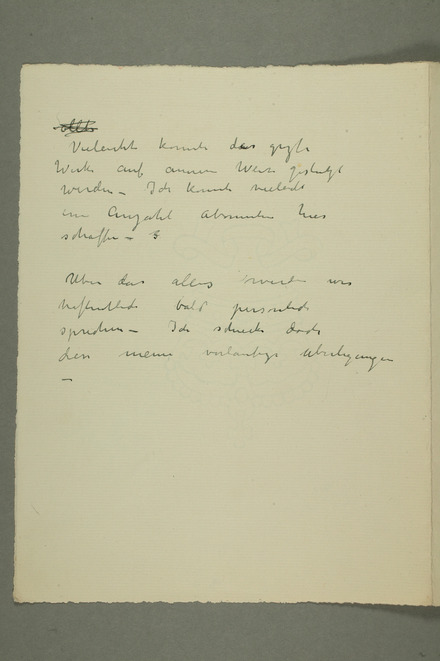 Vielleicht konnte das große
Werk auf andere Weise gestützt
werden – Ich konnte vielleicht
eine Anzahl Abonnenten hier
schaffen –
Über das alles werden wir
hoffentlich bald persönlich
sprechen – Ich schicke doch
den meine vorläufige Überlegungen
–